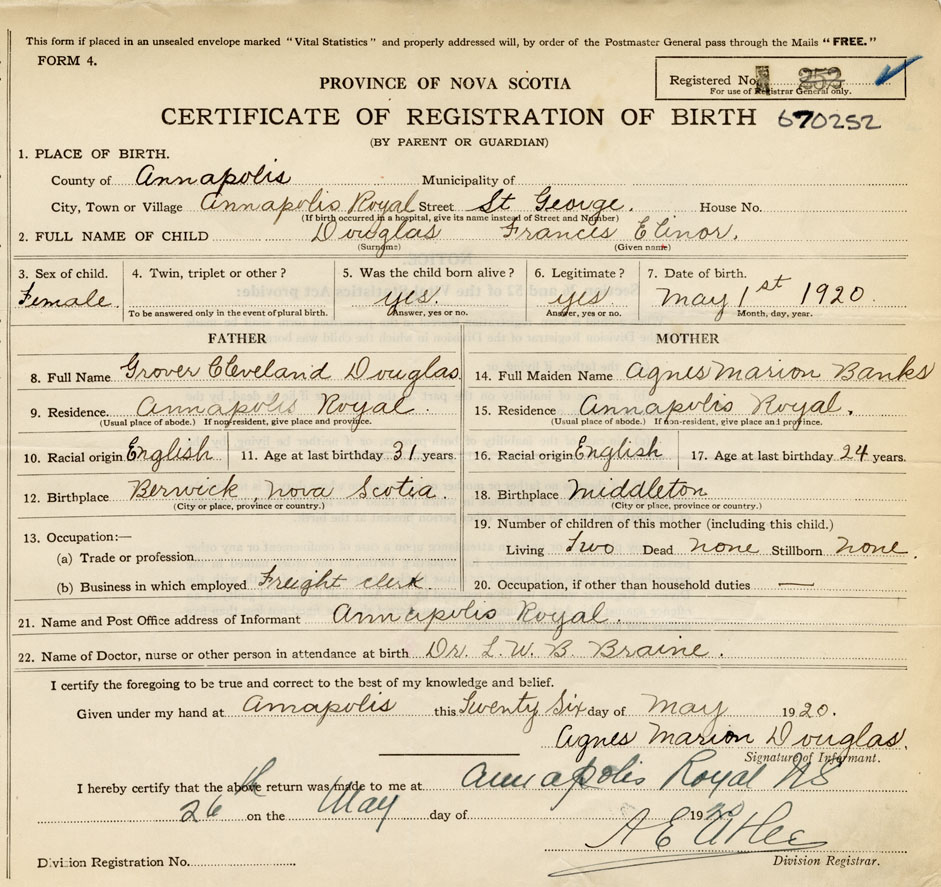 This form if placed in an unsealed envelope marked "Vital Statistics" and properly addressed will, by order of the Postmaster General pass through the Mails "FREE."
FORM 4.
Registered No. 252
For use of Registrar General only.
PROVINCE OF NOVA SCOTIA
CERTIFICATE OF REGISTRATION OF BIRTH 670252
(BY PARENT OR GUARDIAN)
1. PLACE OF BIRTH.
County of Annapolis Municipality of
City, Town or Village Annapolis Royal Street St George. House No.
(If birth occurred in a hospital, give its name instead of Street and Number)
2. FULL NAME OF CHILD Douglas Frances Elinor.
(Surname) (Given name)
3. Sex of child. 4. Twin, triplet or other? 5. Was the child born alive? 6. Legitimate? 7. Date of birth.
Female. yes. yes May 1st 1920.
To be answered only in the event of plural birth. Answer, yes or no. Answer, yes or no. Month, day, year.
FATHER MOTHER
8. Full Name Grover Cleveland Douglas 14. Full Maiden Name Agnes Marion Banks
9. Residence. Annapolis Royal. 15. Residence Annapolis Royal.
(Usual place of abode.) If non-resident, give place and province. (Usual place of abode.) If non-resident, give place and province.
10. Racial origin English 11. Age at last birthday 31 years. 16. Racial origin English 17. Age at last birthday 24 years.
12. Birthplace Berwick, Nova Scotia. 18. Birthplace Middleton
(City or place, province or country.) (City or place, province or country.)
13. Occupation:— 19. Number of children of this mother (including this child.)
(a) Trade or profession Living Two Dead None Stillborn None.
(b) Business in which employed Freight clerk 20. Occupation, if other than household duties —
21. Name and Post Office address of Informant Annapolis Royal.
22. Name of Doctor, nurse or other person in attendance at birth Dr. L. W. B. Braine.
I certify the foregoing to be true and correct to the best of my knowledge and belief.
Given under my hand at Annapolis this Twenty Six day of May 1920.
Agnes Marion Douglas.
Signature of Informant.
I hereby certify that the above return was made to me at Annapolis Royal NS
26th on the May day of 1920
A E Atlee
Division Registration No. Division Registrar.